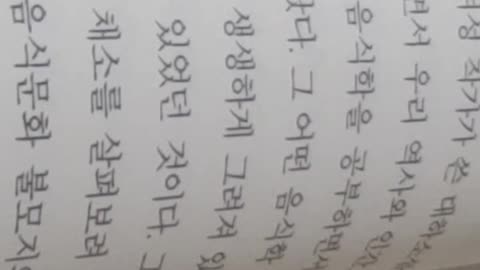 작가가 쓴 대하소
면서 우리 역사와 인
음식학을 공부하면서
다. 그 어떤 음식학
생생하게 그려져 있
있었던 것이다. 그
채소를 살펴보러
음식문화 불모지